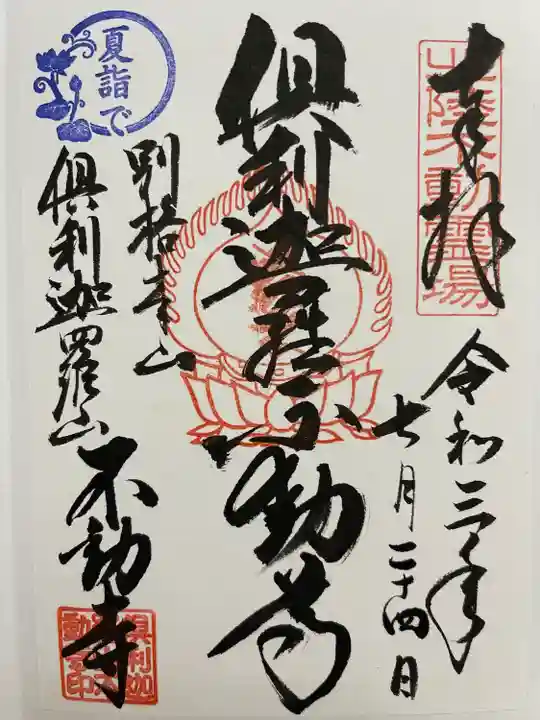 奉拝
北陸不動霊場
令和三年
七月二十四日
倶利迦羅不動尊
別格本山
倶利迦羅山
不動寺
夏詣で